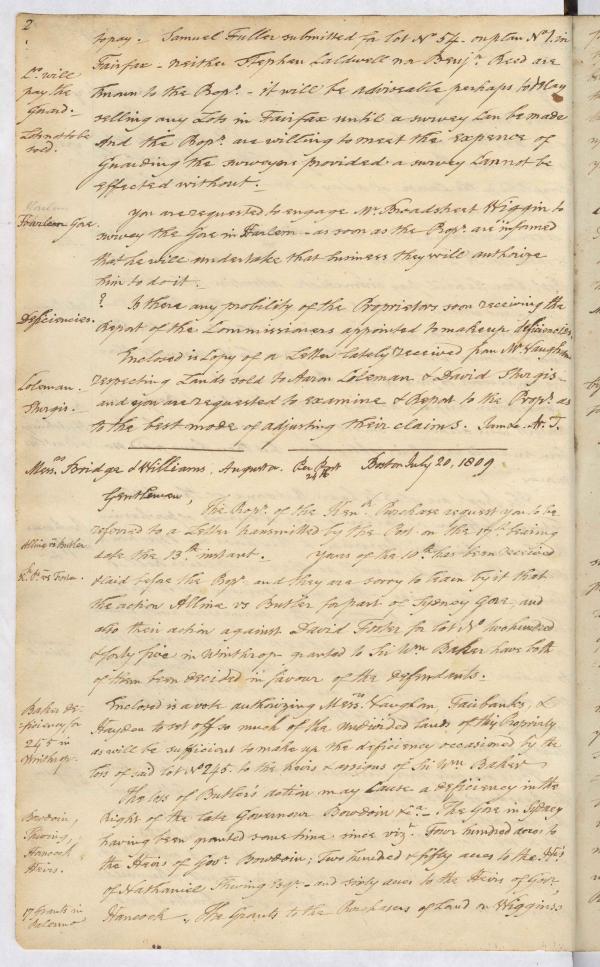 2
to pay. Samuel Fuller submitted for lot No 54. on plan No 1. in
Fairfax - neither Stephen Caldwell nor Benjn Reed are
known to the Propr. - it will be adviseable perhaps to delay
selling any Lots in Fairfax until a survey can be made
and the Propr. are willing to meet the expence of
Guarding the surveyor provided a survey cannot be
effected without.
Pr. will
pay the
Guard.
Lots not to be
sold.
You are requested to engage Mr. Broadstreet Wiggin to
survey the Gore in Harlem - as soon as the Propr. are informed
that he will undertake that business they will authorize
him to do it.
Harlem Gore.
? Is there any probility of the Proprietors soon receiving the
Report of the Commissioners appointed to make up deficiencies
Deficiencies.
Enclosed is Copy of a Letter lately received from Mr. Vaughan
respecting Lands sold to Aaron Coleman & David Sturgis -
and you are requested to examine & Report to the Propr. as
to the best mode of adjusting their claims.
Coleman.
Sturgis.
Messrs. Bridge & Williams, Augusta. Per Post Boston July 20, 1809
Gentlemen,
The Propr. of the Kenk. Purchase request you to be
referred to a Letter transmitted by the Post on the bearing
date the 13th instant. Yours of the 10th has been received
& laid before the Propr. and they are sorry to learn by it that
the action Alline vs Butler for part of Sydney Gore, and
also their action against David Foster for lot No two hundred
& forty five in Winthrop granted to Sir Wm Baker have both
of them been decided in favour of the defendants.
Alline vs Butler
vs Foster.
Enclosed is a vote authorizing Messrs. Vaughan, Fairbanks, &
Haydon to set off so much of the undivided lands of this Propriety
as will be sufficient to make up the deficiency occasioned by the
loss of said lot No 245. to the heirs & assigns of Sir Wm Baker
Baker de-
ficiency for
245 in
Winthrop.
The loss of Butler's action may cause a deficiency in the
Right of the late Governour Bowdoin &ca. - The Gore in Sydney
having been granted some time since vizt. Four hundred acres to
the Heirs of Govr. Bowdoin; Two hundred & fifty acres to the Heirs
of Nathaniel Thwing Esqr. - and sixty acres to the Heirs of Govr.
Hancock. The Grants to the Purchasers of Land on Wiggins's
Bowdoin,
Thwing,
Hancock
Heirs.
17 Grants in
Palermo